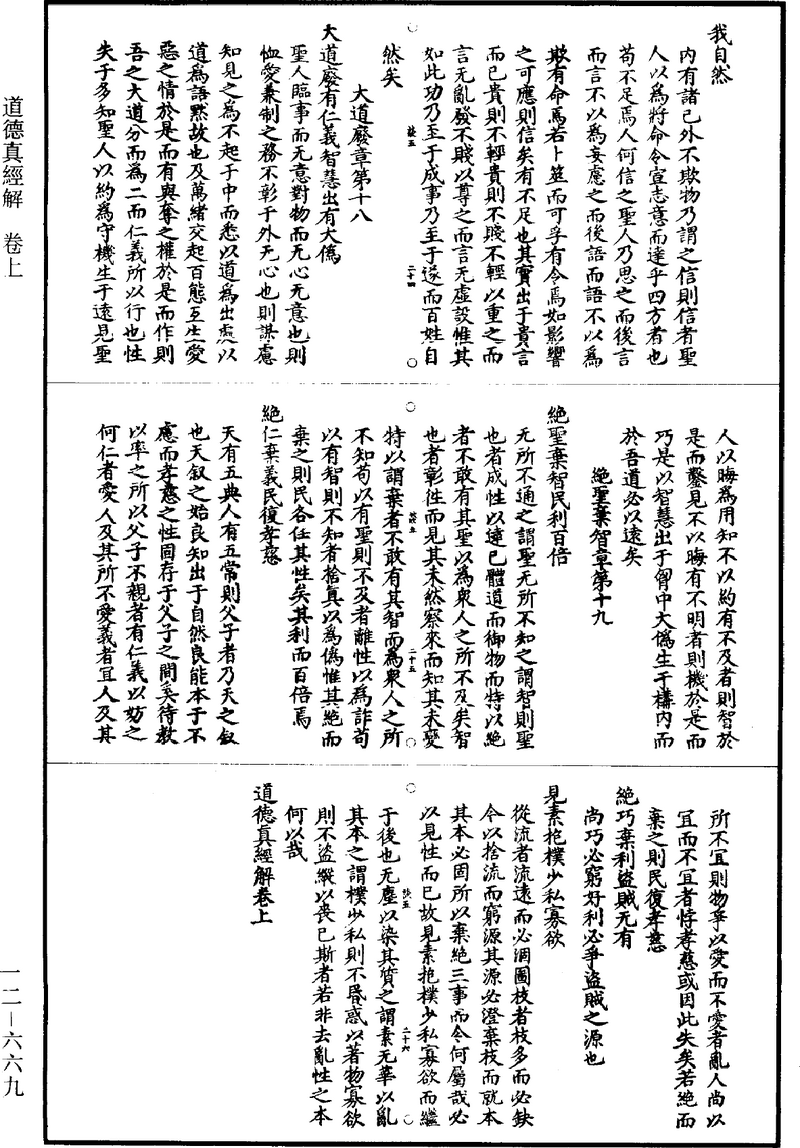 道德真經解　卷上
我自然
內有諸己外不欺物乃謂之信則信者聖
人以為將命令宣志意而達乎四方者也
苟不足焉人何信之聖人乃思之而後言
而言不以為妄慮之而後語而語不以為
欺有命焉若卜筮而可孚有令焉如影響
之可應則信矣有不足也其實出于貴言
而已貴則不輕貴則不賤不輕以重之而
言无亂發不賤以尊之而言无虛設惟其
如此功乃至于成事乃至于遂而百姓自
然矣
二十四
大道廢章第十八
大道廢有仁義智慧出有大偽
聖人臨事而无意對物而无心无意也則
恤愛兼制之務不彰于外无心也則謀慮
知見之為不起于中而悉以道為出處以
道為語默故也及萬緒交起百態互生愛
惡之情於是而有與奪之權於是而作則
吾之大道分而為二而仁義所以行也性
失于多知聖人以約為守機生于遠見聖
人以晦為用知不以約有不及者則智於
是而鑿見不以晦有不明者則機於是而
巧是以智慧出于胷中大偽生于構內而
於吾道必以遠矣
絕聖棄智章第十九
絕聖棄智民利百倍
无所不通之謂聖无所不知之謂智則聖
也者成性以達已體道而御物而特以絕
者不敢有其聖以為衆人之所不及矣智
也者彰往而見其未然察來而知其未變
二十五
特以謂棄者不敢有其智而為衆人之所
不知苟以有聖則不及者離性以為詐苟
以有智則不知者捨真以為偽惟其絕而
棄之則民各任其性矣其利而百倍焉
絕仁棄義民復孝慈
天有五典人有五常則父子者乃天之叙
也天叙之始良知出于自然良能本于不
慮而孝慈之性固存于父子之間奚待教
以率之所以父子不親者有仁義以妨之
何仁者愛人及其所不愛義者宜人及其
所不宜則物爭以愛而不愛者亂人尚以
宜而不宜者悖孝慈或因此失矣若絕而
棄之則民復孝慈
絕巧棄利盜賊无有
尚巧必窮好利必爭盜賊之源也
見素抱樸少私寡欲
從流者流遠而必涸圖枝者枝多而必缺
今以捨流而窮源其源必澄棄枝而就本
其本必固所以棄絕三事而令何屬哉必
以見性而已故見素抱樸少私寡欲而繼
于後也无塵以染其質之謂素无華以亂
二十六
其本之謂樸少私則不昬惑以著物寡欲
則不盜縱以喪已斯者若非去亂性之本
何以哉
道德真經解卷上
一二—六六九